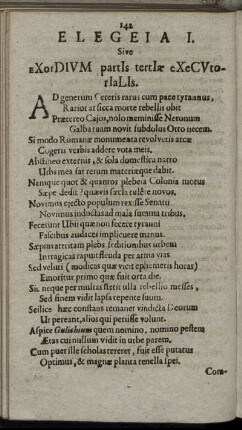 142
ELEGEIA I.
Sive
eXorDIVM partIs tertIæ eXeCVto-
rIaLIs.
AD generum Cereris rarus cum pace tyrannus,
Rarior at sicca morte rebellis obit
Prætereo Cajos, nolo meminisse Neronum
Galba tuam novit subdolus Otto necem.
Si modo Romanæ monumenta revolveris arcæ
Cogeris verbis addere vota meis,
Abstineo externis, & sola domestica narro
Urbs mea sat rerum materiæque dabit.
Nunque quot & quantos plebeia Colonia motus
Sæpe dedit? quavis sæcla tulere novos,
Novimus ejecto populum rexisse Senatu
Novimus inductas ad mala summa tribus,
Fecerunt Ubii quæ non fecere tyranni
Fascibus audaces implicuere manus.
Sæpius attritam plebs seditionibus urbem
In tragicas rapuit stenda per arma vias.
Sed veluti (modicas quæ vicit ephemeris horas)
Emoritur primo quæ fuit orta die.
Sic neque per multas stetit ulla rebellio messes,
Sed finem vidit lapsa repente suum.
Scilice hæc constans temanet vindicta Deorum
Ut pereant, alios qui periisse volunt.
Aspice Gulichium quem nomino, nomino pestem
Ætas cui nullum vidit in urbe parem,
Cum puer ille scholas tereret, fuit esse putatus
Optimus, & magnæ planta tenella spei,
Com-